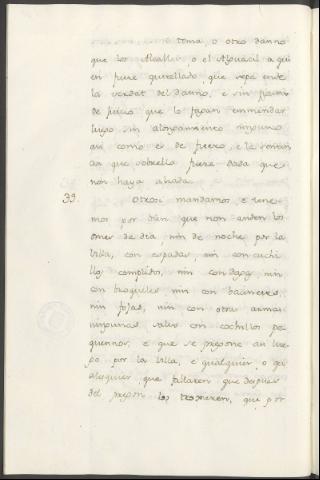 tema, o otro danno
que los Alcalles, o el Alguacil a qui
en fuere querellado, que sepa ende
la verdat del danno, e sin figura
de juicio que lo fagan emmendar
luego sin alongamiento ninguno
asi como es de fuero, e la senten
cia que sobrello fuere dada que
non haya alzada.
33. Otrosi mandamos, e tene
mos por bien que non anden los
omes de dia, nin de noche por la
Villa, con espadas nin con cuchi
llos complidos, nin con nin
con broqueles nin con bacinetes,
nin fojas, nin con otras armas
ningunas, salvo con cochillos pe
quennos, e que se pregone asi lue
go por la Villa, e qualquier, o qua
lesquier, que fallaren que despues
del pregon los troxieren, que por